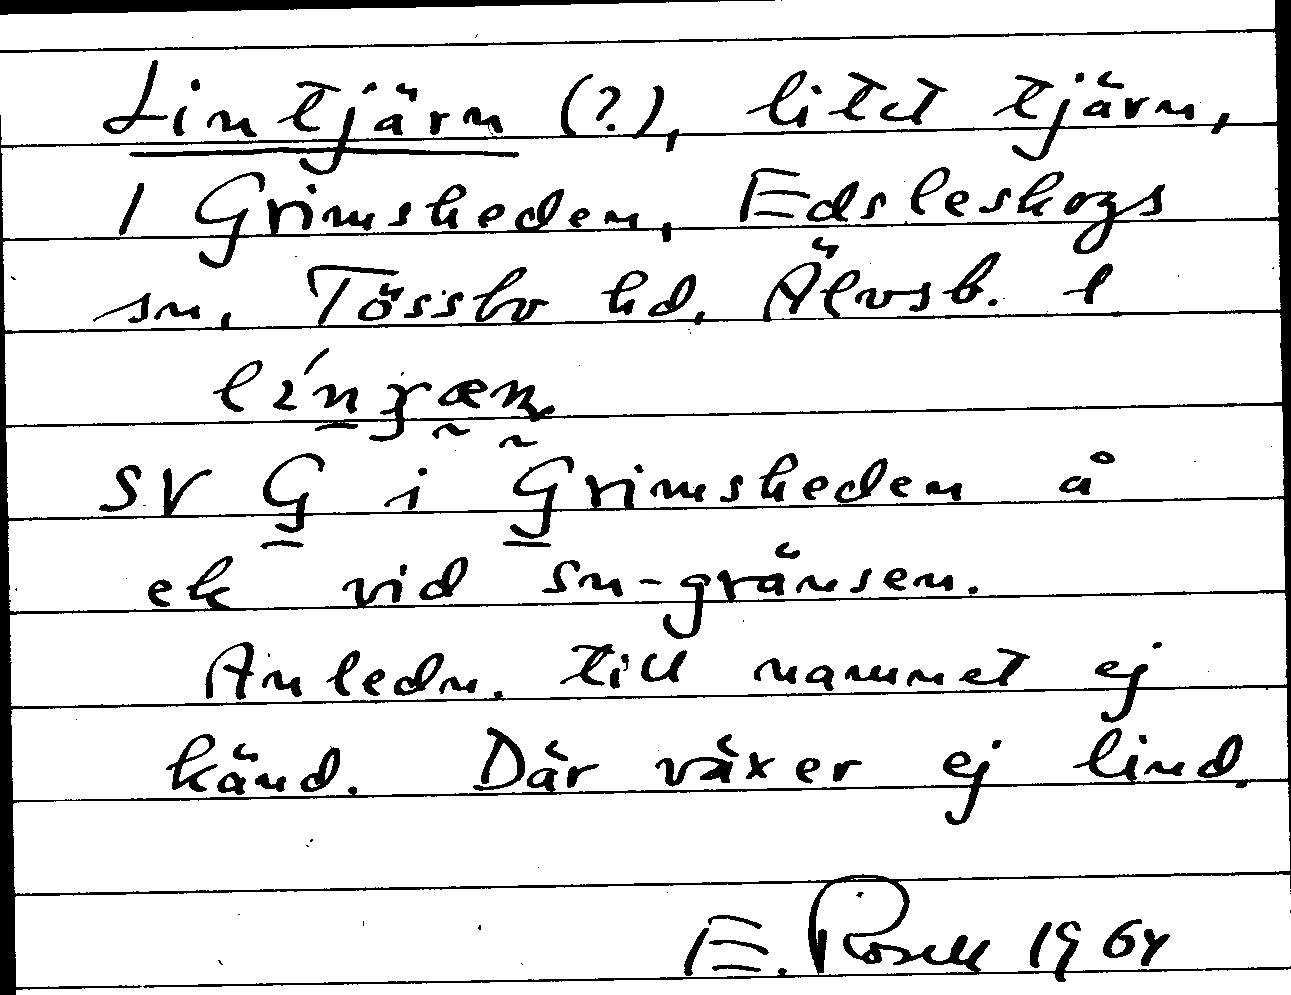 Lintjärn (?), litet tjärn,
1 Grimsheden, Edsleskogs
sn, Tössbo hd, Älvsb. l
SV G i Grimsheden å
ek vid sn-gränsen.
Anledn. till namnet ej
känd. Där växer ej lind.
E. Rosell 1964